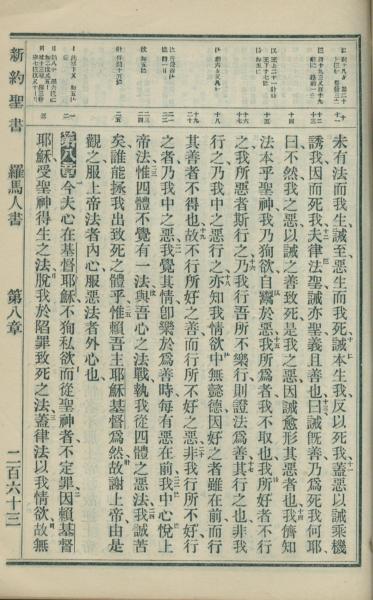 未有法而我生誡至惡生而我死誡本生我反以死我蓋惡以誡乘機
誘我因而死我夫律法聖誡亦聖義且善也曰誡旣善乃爲死我何耶
曰不然我之惡以誡之善致死是我之惡因誡愈形其惡者也我儕知
法本乎聖神我乃狥欲自鬻於惡我所爲者我不取也我所好者不行
之我所惡者斯行之乃我行吾所不樂行則證法爲善其行之也非我
行之乃我中之惡行之亦知我情欲中無懿德因好之者雖在前而行
其善者不得也故不行所好之善而行所不好之惡非我行所不好行
之者乃我中之惡我覺其情卽樂於爲善時每有惡在前我中心悅上
帝法惟四體不覺有一法與吾心之法戰執我從四體之惡法我誠苦
矣誰能拯我出致死之體乎惟賴吾主耶穌基督爲然故謝上帝由是
觀之服上帝法者內心服惡法者外心也
第八章今夫心在基督耶穌不狥私欲而從聖神者不定罪因賴基督
耶穌受聖神得生之法脫我於陷罪致死之法蓋律法以我情欲故無
新約聖書 羅馬人書 第八章 二百六十三